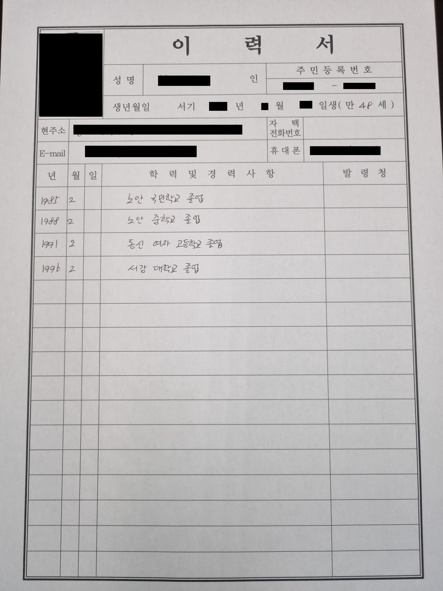 이 력 서
성 명 인
주 민 등 록 번 호
–
생년월일 서기 년 월 일생( 만 48 세 )
현주소
자 택
전화번호
E-mail
휴 대 폰
년 월 일 학 력 및 경 력 사 항 발 령 청
1985 2 노안 국민학교 졸업
1988 2 노안 중학교 졸업
1991 2 동신 여자 고등학교 졸업
1996 2 서강 대학교 졸업